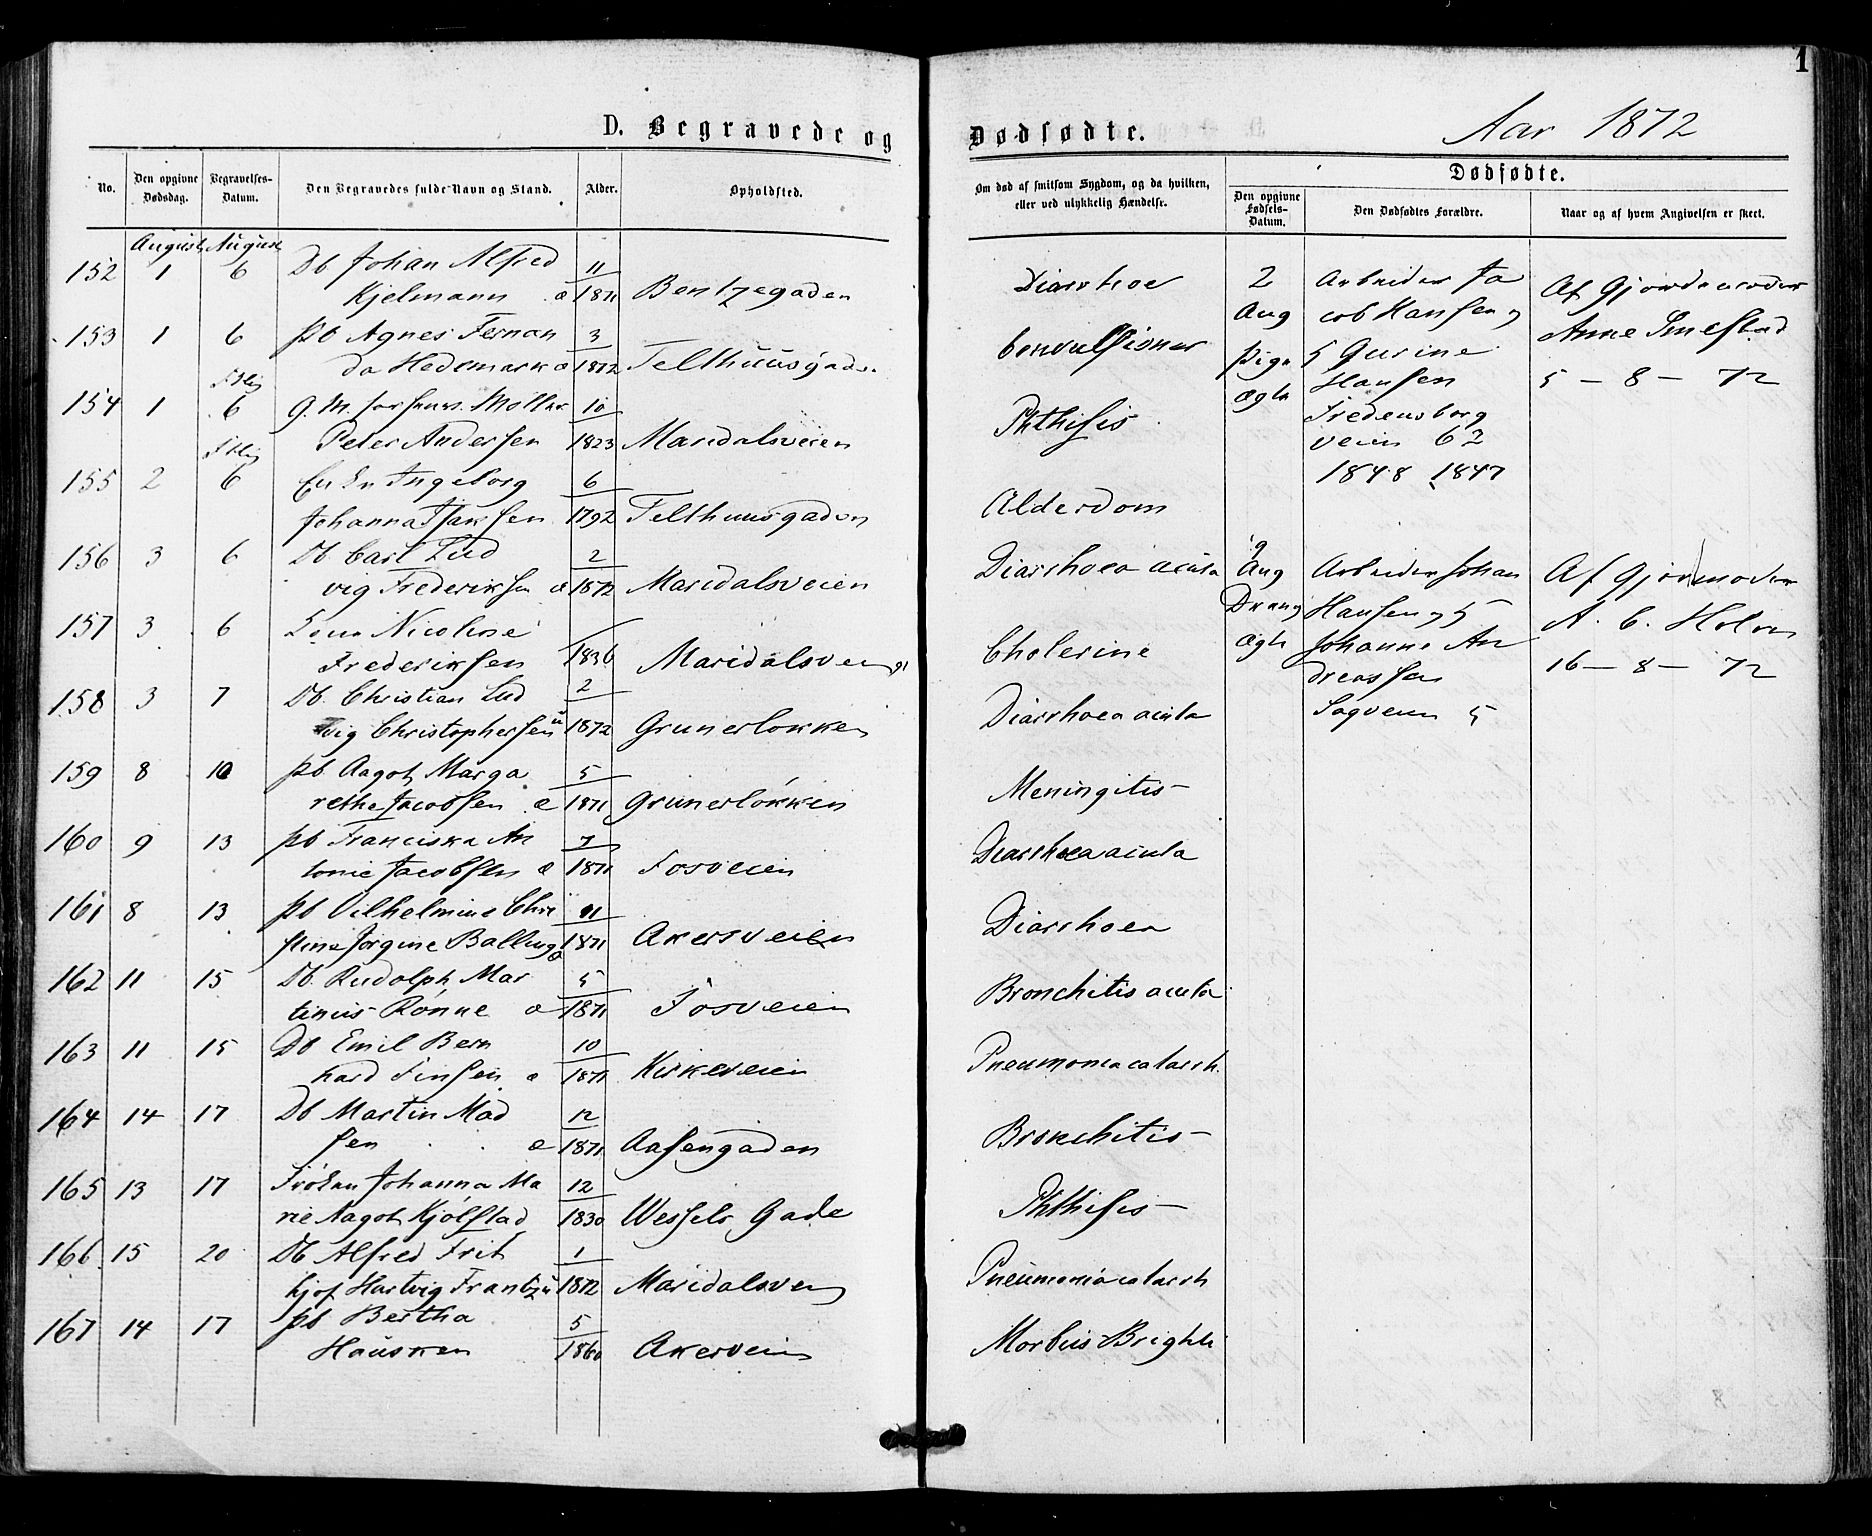 1
D. Begravede og
Dødfødte.
Aar 1872
No.
Den opgivne Dødsdag.
Begravelses-Datum.
Den Begravedes fulde Navn og Stand.
Alder.
Opholdsted.
Om død af smitsom Sygdom, og da hvilken,
eller ved ulykkelig Hændelse.
Dødfødte.
Den opgivne Fødsels-Datum.
Den Dødfødtes Forældre.
Naar og af hvem Angivelsen er skeet.
August August
152 1 6 Db Johan Alfred 11
Kjelmann æ 1871 Bentzegaden Diarrhoe
153 1 6 pb Agnes Fernan 3
da Hedemark æ 1872 Telthuusgaden Convulsioner
154 1 6 G. M. Møller 10
Peter Andersen 1823 Maridalsveien Phthisis
155 2 6 Ingeborg 6
Johanna Isaksen 1792 Telthuusgaden Alderdom
156 3 6 Db Carl Lud 2
vig Frederiksen æ 1872 Maridalsveien Diarrhoea acuta
157 3 6 Nicoline
Frederiksen 1836 Maridalsveien Cholerine
158 3 7 Db. Christian Lud 2
vig Christophersen u 1872 Grunerløkken Diarrhoea acuta
159 8 10 pb Aagot Marga 5
rethe Jacobsen æ 1871 Grunerløkken Meningitis
160 9 13 pb Franciska An 7
tonie Jacobsen æ 1871 Fosveien Diarrhoea acuta
161 8 13 pb Vilhelmine Chri 11
stine Jørgine Balling æ 1871 Akersveien Diarrhoea
162 11 15 Db. Rudolph Mar 5
tinius Rønne æ 1871 Fosveien Bronchitis acuta
163 11 15 Db Emil Bern 10
hard Finsen æ 1871 Kirkeveien Pneumonia catarrh.
164 14 17 Db Martin Mad 12
sen æ 1871 Aasengaden Bronchitis
165 13 17 Frøken Johanna Ma 12
rie Aagot Kjølstad 1830 Wessels Gade Phthisis
166 15 20 Db Alfred Frit 1
hjof Hartvig Frantzen 1872 Maridalsvei Pneumonia catarrh
167 14 17 pb Bertha 5
Hausken 1860 Akersvei Morbus Brighti
2
Aug
Pige
ægte
Arbeider Ja
cob Hansen og
Gurine
Hansen
Fredensborg
veien 62
1848 1847
Af Gjordemoder
Anne Smestad
5 - 8 - 72
9
Aug
Dreng
ægte
Arbeider Johan
Hansen og
Johanne An
dreassen
Sagveien 5
Af Gjormoder
A. C. Holm
16 - 8 - 72